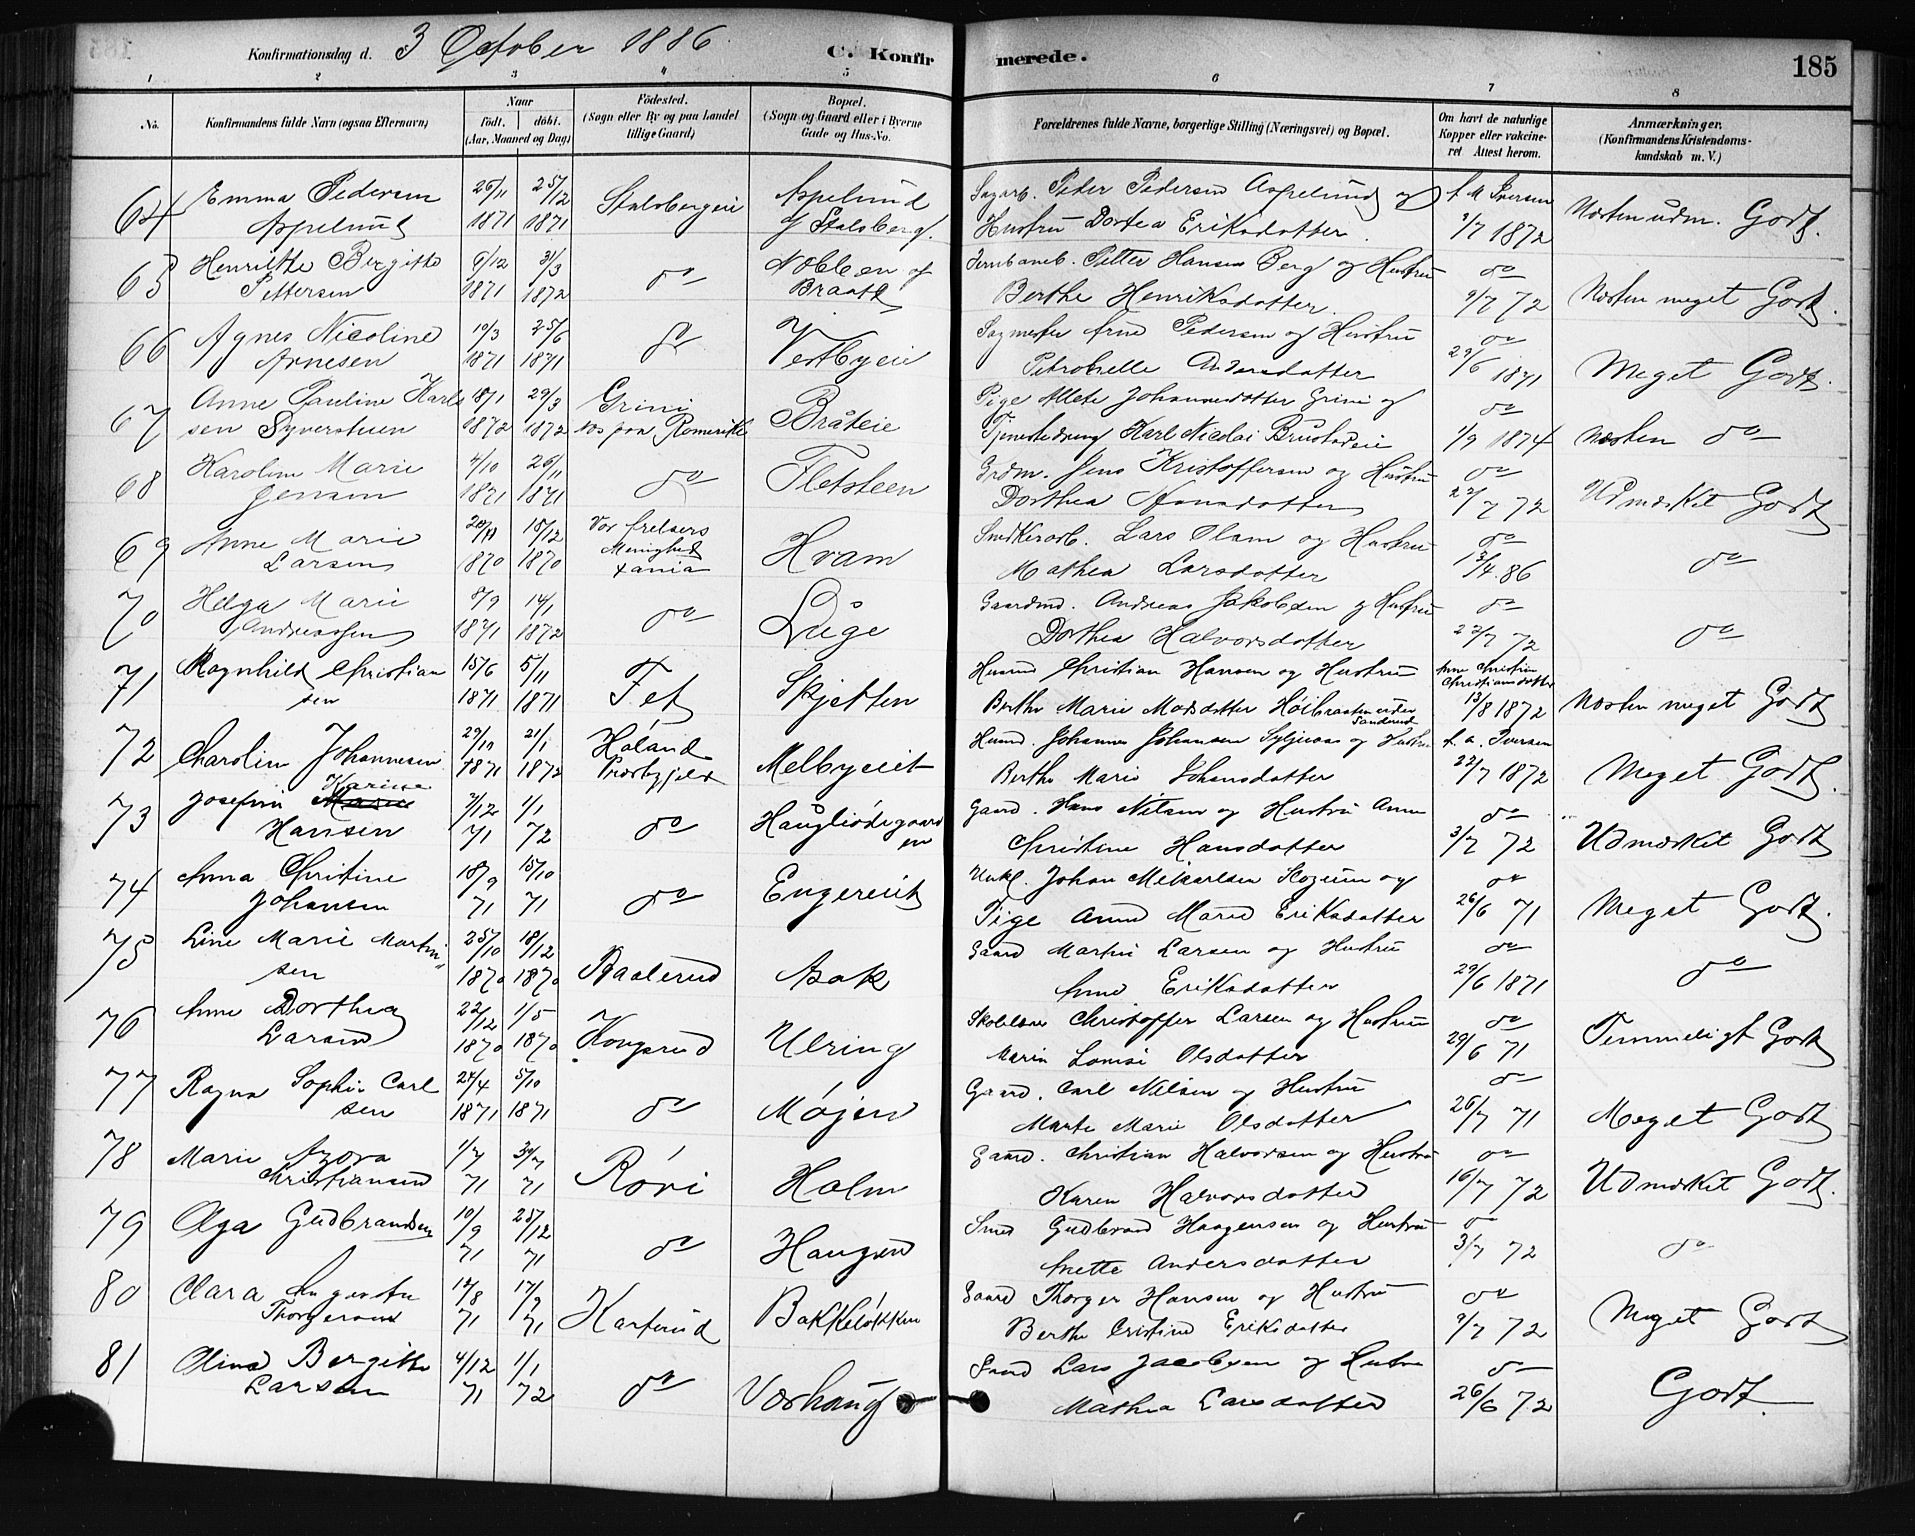 185
Konfirmationsdag d. 3 October 1886
C. Konfirmerede.
1 2 3 4 5 6 7 8
No.
Konfirmandens fulde Navn (ogsaa Efternavn)
Naar
födt. döbt.
(Aar, Maaned og Dag)
Födested.
(Sogn eller By og paa Landet
tillige Gaard)
Bopæl.
(Sogn og Gaard eller i Byerne
Gade og Hus-No.
Forældrenes fulde Navne, borgerlige Stilling (Næringsvei) og Bopæl.
Om havt de naturlige
Kopper eller vakcine-
ret Attest herom.
Anmærkninger.
(Konfirmandens Kristendoms-
kundskab m. V.)
64 Emma Pedersen 26/11 25/12 Stalsbergeie Appelund Sagarb. Peder Pedersen Aspelund og
Appelund 1871 1871 af Stalsberg. Hustru Dortea Eriksdatter. 9/7 1872 Næsten udm. Godt.
65 Henriette Bergitte 9/12 31/3 do Nobleen af Jernbaneb. Petter Hansen Berg og Hustru do
Pettersen 1871 1872 Braate Berthe Henriksdatter. 9/7 72 Næsten meget Godt.
66 Agnes Nicoline 10/3 25/6 do Vestbyeie Sagmester Arne Pedersen og Hustru do
Arnesen 1871 1871 Petronelle Andersdatter 29/6 1871 Meget Godt.
67 Anne Pauline Karl 18/1 29/3 Grini Bråteie Pige Johannesdatter Grini og do
sen Syverstuen 1872 1872 Næs paa Romerike Tjenestedreng Karl Nicolai Brustadeie 1/9 1874 Næsten do
68 Karoline Marie 4/10 26/11 do Fletsteen Grdm. Jens Kristoffersen og Hustru do
Jensen 1871 1871 Dorthea Hansdatter 22/7 72 Udmærket Godt
69 Anne Marie 15/12 Vor frelsers Hvam Snedkerarb. Lars Olsen og Hustru do
Larsen 1870 1870 Menighed Xania Mathea Larsdatter 13/4 86 do
70 Helga Marie 8/9 14/1 do Lüge Gaardmd. Andreas Jakobsen og Hustru do
Andreassen 1871 1872 Dorthea Halvorsdatter 22/7 72 do
71 Ragnhild Christian 15/6 5/11 Fet Skjetten Husmd Christian Hansen og Hustru Anne Christine Christiansdatter
sen 1871 1871 Berthe Marie Madsdatter Høibraaten under Sanderud 13/8 1872 Næsten meget Godt
72 Charoline Johannesen 29/10 21/1 Høland Melbyeiet Husmd. Johannes Johansen og Hustru Iversen
1871 1872 Præstegjeld Berthe Marie Johansdatter 22/7 1872 Meget Godt.
73 Josefine Karine 7/12 1/1 do Haugliødegaard Gaard. Hans Nilsen og Hustru Anne do
Hansen 71 72 en Christine Hansdatter 3/7 72 Udmærket Godt
74 Anna Christine 18/9 15/10 do Engereiet Unkl. Johan Mikarlsen og do
Johansen 71 71 Pige Anne Marie Eriksdatter 26/6 71 Meget Godt.
75 Line Marie Martin 25/10 18/12 Baalerud Asak Gaard Martin Larsen og Hustru do
sen 1870 1870 Anne Eriksdatter 29/6 1871 do
76 Anne Dorthea 22/12 1/5 Kongsrud Ulring Skolelærer Christoffer Larsen og Hustru do
Larsen 1870 1870 Maren Lovise Olsdatter 29/6 71 Temmeligt Godt
77 Ragna Sophie Carl 24/4 5/10 do Møjen Gaard. Carl Nilsen og Hustru do
sen 1871 1871 Marte Marie Olsdatter 26/7 71 Meget Godt
78 Marie 1/7 30/7 Røvi Holm Gaard. Christian Halvorsen og Hustru do
Christiansen 71 71 Karen Halvorsdatter 16/7 72 Udmærket Godt.
79 Olga Gudbrandsen 10/9 25/12 do Haugen Smed Gudbrand Haagensen og Hustru do
71 71 Anette Andersdatter 3/7 72 do
80 Clara Augusta 12/8 17/9 Karterud Bakkeløkken Gaard Thorger Hansen og Hustru do
Thorgersen 71 71 Berthe Cristine Eriksdatter 9/7 72 Meget Godt
81 Oline Bergitte 4/12 1/1 do Værhaug Smed Lars Jacobsen og Hustru do
Larsen 71 72 Mathea Larsdatter 26/6 72 Godt.